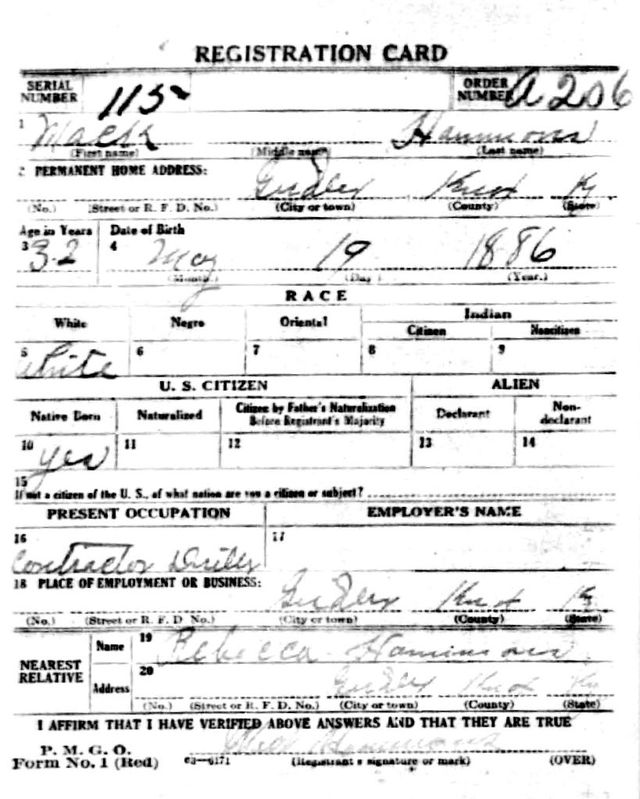 REGISTRATION CARD
SERIAL NUMBER 115 ORDER NUMBER A 206
1 Mack Hammons
(First name) (Middle name) (Last name)
2 PERMANENT HOME ADDRESS: Knox Ky
(No.) (Street or R. F. D. No.) (City or town) (County) (State)
Age in Years Date of Birth
3 32 4 May 19 1886
(Month.) (Day.) (Year.)
RACE
White Negro Oriental Indian
Citizen Noncitizen
5 White 6 7 8 9
U. S. CITIZEN ALIEN
Native Born Naturalized Citizen by Father's Naturalization Before Registrant's Majority Declarant Non-declarant
10 yes 11 12 13 14
15
If not a citizen of the U. S., of what nation are you a citizen or subject?
PRESENT OCCUPATION EMPLOYER'S NAME
16 17
Contractor
18 PLACE OF EMPLOYMENT OR BUSINESS: Knox Ky
(No.) (Street or R. F. D No.) (City or town) (County) (State)
NEAREST RELATIVE Name 19 Rebecca Hammons
Address 20 Knox Ky
(No.) (Street or R. F. D. No.) (City or town) (County) (State)
I AFFIRM THAT I HAVE VERIFIED ABOVE ANSWERS AND THAT THEY ARE TRUE
P. M. G. O. Hammons
Form No. 1 (Red) 03—6171 (Registrant's signature or mark) (OVER)